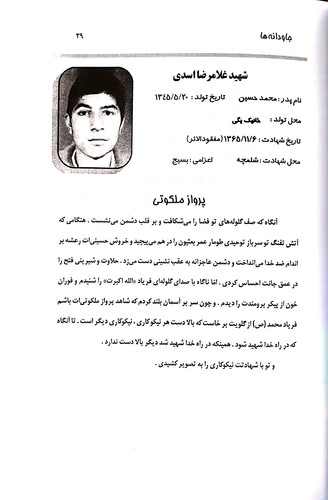 جاودانه‌ها
۲۹
شهید غلامرضا اسدی
نام پدر : محمد حسین تاریخ تولد : ۱۳۴۵/۵/۲۰
محل تولد : خانیک یگی
تاریخ شهادت : ۱۳۶۵/۱۱/۶ (مفقودالاثر)
محل شهادت : شلمچه اعزامی : بسیج
پرواز ملکوتی
آنگاه که صف گلوله‌های تو فضا را می‌شکافت و بر قلب دشمن می‌نشست . هنگامی که
آتش تفنگ تو سرباز توحیدی طومار عمر بعثیون را در هم می‌پیچید و خروش حسینی‌ات رعشه بر
اندام ضد خدا می‌انداخت و دشمن عاجزانه به عقب نشینی دست می‌زد . حلاوت و شیرینی فتح را
در عمق جانت احساس کردی . امّا ناگاه با صدای گلوله‌ای فریاد «الله اکبرت» را شنیدم و فوران
خون از پیکر برومندت را دیدم . و چون سر بر آسمان بلند کردم که شاهد پرواز ملکوتی‌ات باشم
فریاد محمد (ص) از گلویت بر خاست که بالا دست هر نکوکاری ، نیکوکاری دیگر است . تا آنگاه
که در راه خدا شهید شود . همینکه در راه خدا شهید شد دیگر بالا دست ندارد .
و تو با شهادتت نیکوکاری را به تصویر کشیدی .